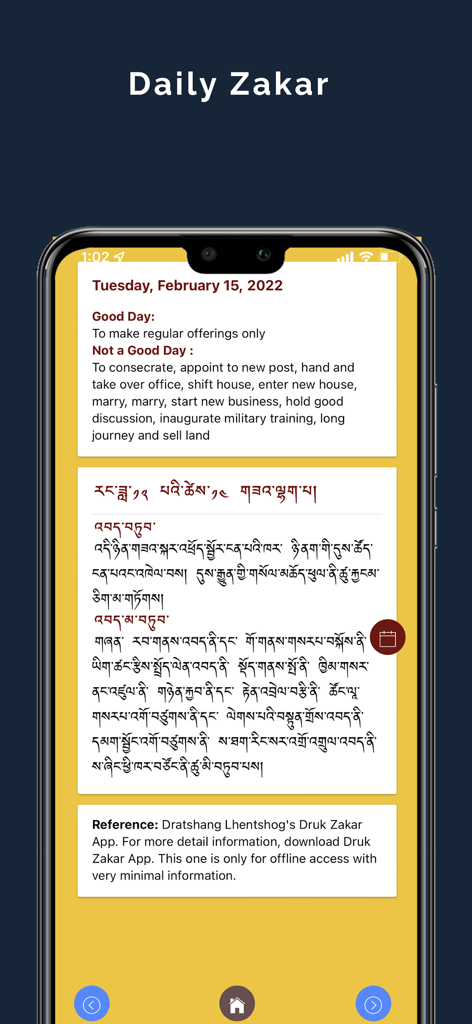 Daily Zakar
1:02
Tuesday, February 15, 2022
Good Day:
To make regular offerings only
Not a Good Day :
To consecrate, appoint to new post, hand and
take over office, shift house, enter new house,
marry, marry, start new business, hold good
discussion, inaugurate military training, long
journey and sell land
རང་ཟླ་༡༢ པའི་ཚེས་༡༤ གཟའ་ལྷག་པ།
འབད་བཏུབ་
འདི་ཉིན་གཟའ་སྐར་འཕྲོད་སྦྱོར་ངན་པའི་ཁར་ ཉི་ནག་གི་དུས་ཚོད་
ངན་པའང་འཁེལ་བས། དུས་རྒྱུན་གྱི་གསོལ་མཆོད་ཕུལ་ནི་ཚུ་རྐྱངམ་
ཅིག་མ་གཏོགས།
འབད་མ་བཏུབ་
གཞན་ རབ་གནས་འབད་ནི་དང་ གོ་གནས་གསརཔ་བསྐོས་ནི་
ཡིག་ཚང་རྩིས་སྤྲོད་ལེན་འབད་ནི་ སྡོད་གནས་སྤོ་ནི་ ཁྱིམ་གསར་
ནང་འཛུལ་ནི་ གཉེན་རྐྱབ་ནི་དང་ རྟེན་འབྲེལ་བརྩི་ནི་ ཚོང་ལཱ་
གསརཔ་འགོ་བཙུགས་ནི་དང་ ལེགས་པའི་བསྟུན་གྲོས་འབད་ནི་
དམག་སྦྱོང་འགོ་བཙུགས་ནི་ ས་ཐག་རིང་སར་འགྲོ་འགྲུལ་འབད་ནི་
ས་ཞིང་ཕྱི་ཁར་བཙོང་ནི་ཚུ་མི་བཏུབ་པས།
Reference: Dratshang Lhentshog's Druk Zakar
App. For more detail information, download Druk
Zakar App. This one is only for offline access with
very minimal information.